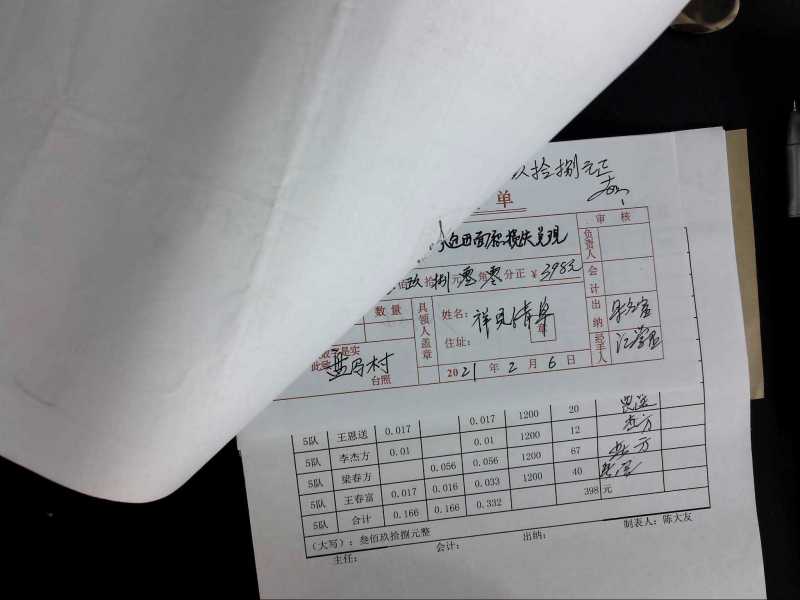 玖拾捌元正
单
面积损失兑现
审核
负责人
佰玖拾捌元零角零分正 ¥398元
会计
数量
具领人盖章
姓名：祥见清单
章
住址：
出纳
经手人
数字是实
此致
台照
2021年2月6日
5队 王恩送 0.017 0.017 1200 20
5队 李杰方 0.01 0.01 1200 12
5队 梁春方 0.056 0.056 1200 67
5队 王春富 0.017 0.016 0.033 1200 40
5队 合计 0.166 0.166 0.332 398元
（大写）：叁佰玖拾捌元整
主任： 会计： 出纳： 制表人：陈大友